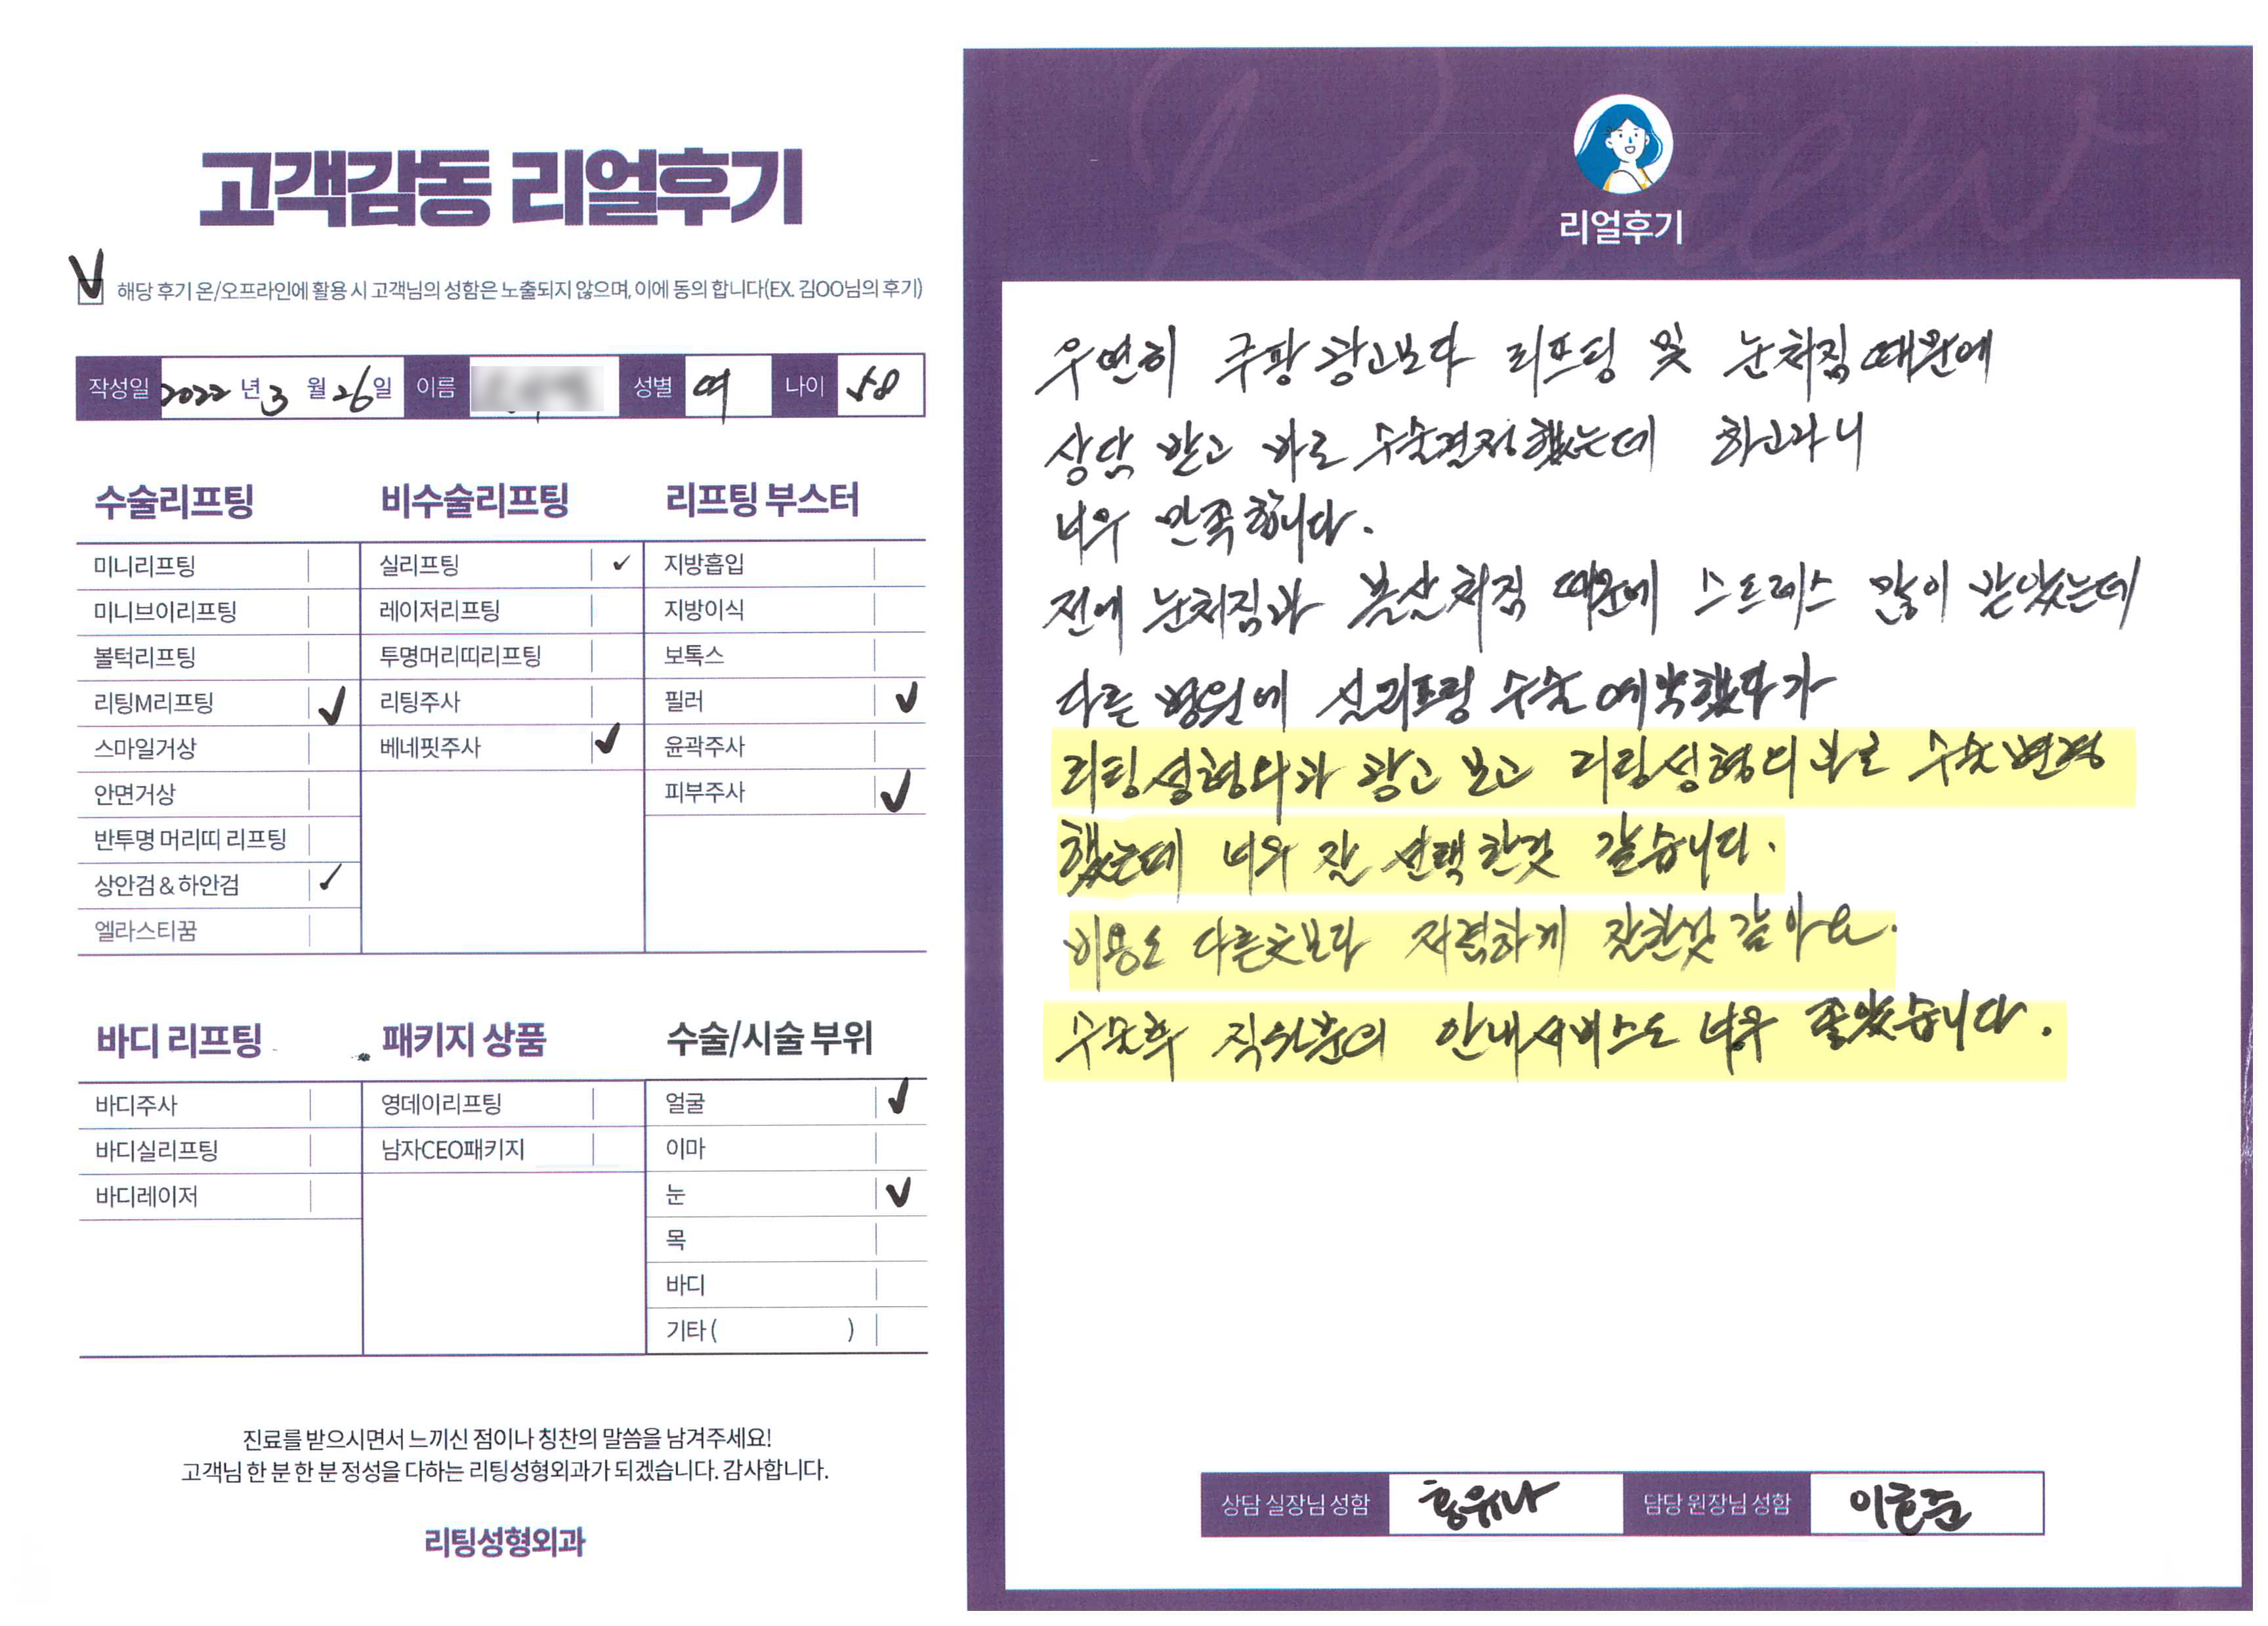 고객감동 리얼후기
해당 후기 온/오프라인에 활용 시 고객님의 성함은 노출되지 않으며, 이에 동의 합니다(EX. 김OO님의 후기)
작성일 2022 년 3 월 26 일 이름 성별 여 나이 58
수술리프팅
미니리프팅
미니브이리프팅
볼턱리프팅
리팅M리프팅
스마일거상
안면거상
반투명 머리띠 리프팅
상안검 & 하안검
엘라스티꿈
비수술리프팅
실리프팅
레이저리프팅
투명머리띠리프팅
리팅주사
베네핏주사
리프팅 부스터
지방흡입
지방이식
보톡스
필러
윤곽주사
피부주사
바디 리프팅
바디주사
바디실리프팅
바디레이저
패키지 상품
영데이리프팅
남자CEO패키지
수술/시술 부위
얼굴
이마
눈
목
바디
기타 ( )
진료를 받으시면서 느끼신 점이나 칭찬의 말씀을 남겨주세요!
고객님 한 분 한 분 정성을 다하는 리팅성형외과가 되겠습니다. 감사합니다.
리팅성형외과
Review
리얼후기
우연히 쿠팡 광고보다 리프팅 및 눈처짐 때문에
상담 받고 바로 수술결정했는데 하고나니
너무 만족합니다.
전에 눈처짐과 볼살처짐 때문에 스트레스 많이 받았는데
다른 병원에 실리프팅 수술 예약했다가
리팅성형외과 광고 보고 리팅성형외과로 수술변경
했는데 너무 잘 선택한것 같습니다.
비용도 다른곳보다 저렴하게 잘한것 같아요.
수술후 직원분의 안내서비스도 너무 좋았습니다.
상담 실장님 성함 홍유나 담당 원장님 성함